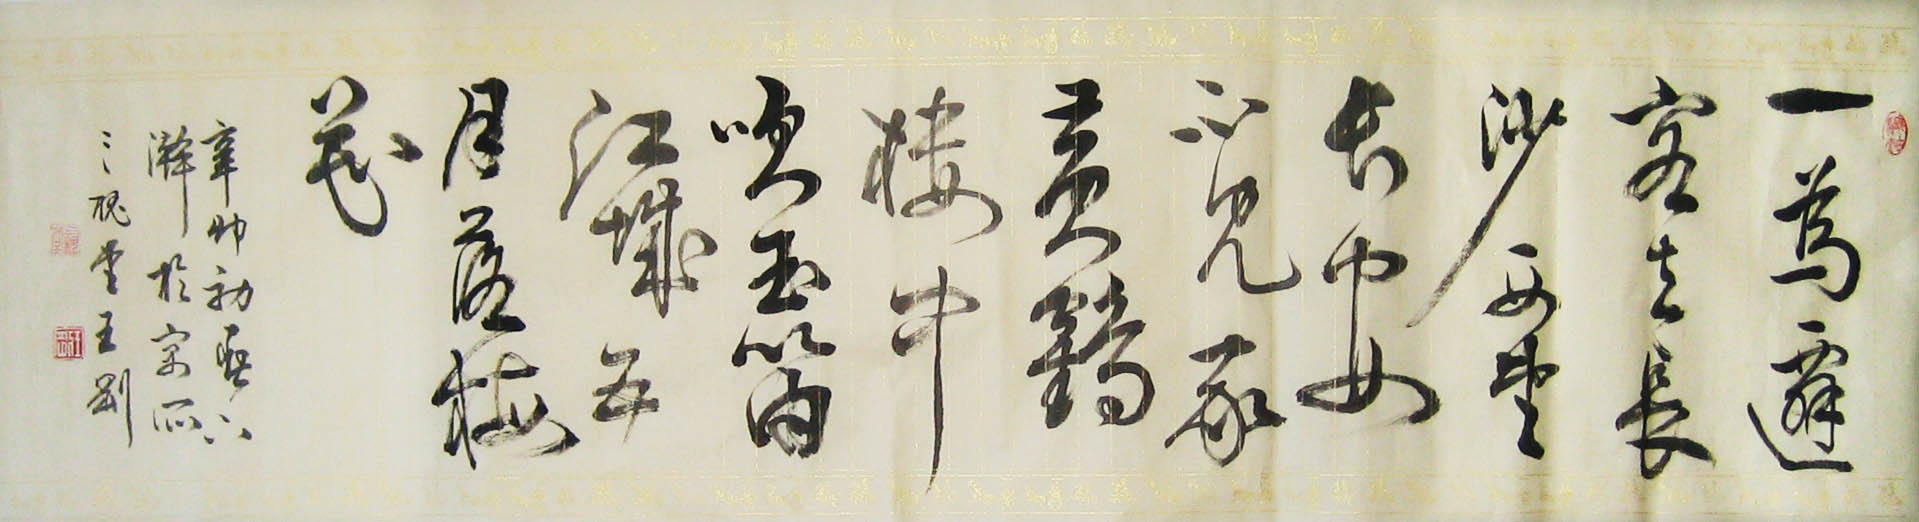 一為遷
客去長
沙西望
長安
不見家
黃鶴
樓中
吹玉笛
江城五
月落梅
花
辛卯初夏下
澣於京師
三槐堂王剛